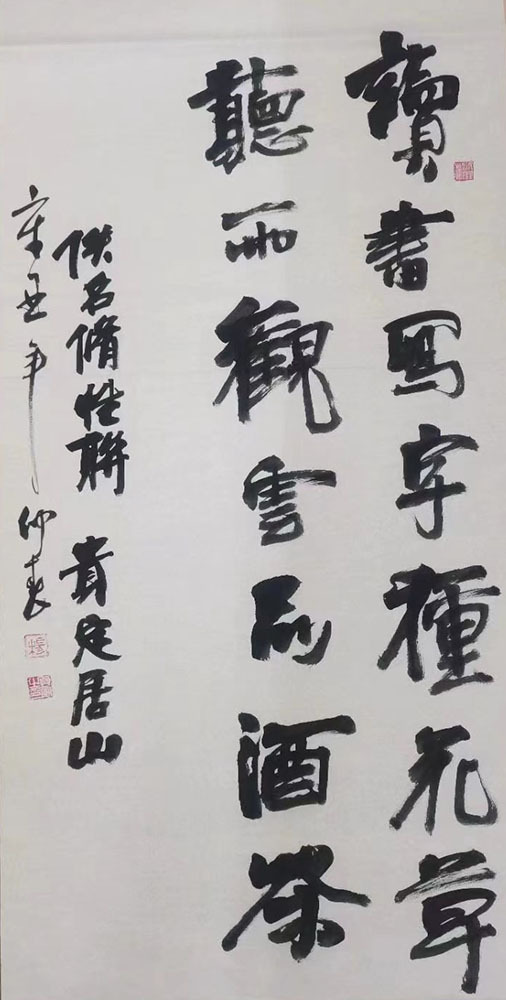 讀書寫字種花草
聽雨觀雲品酒茶
佚名脩性聯 貴定居山
辛丑年仲春